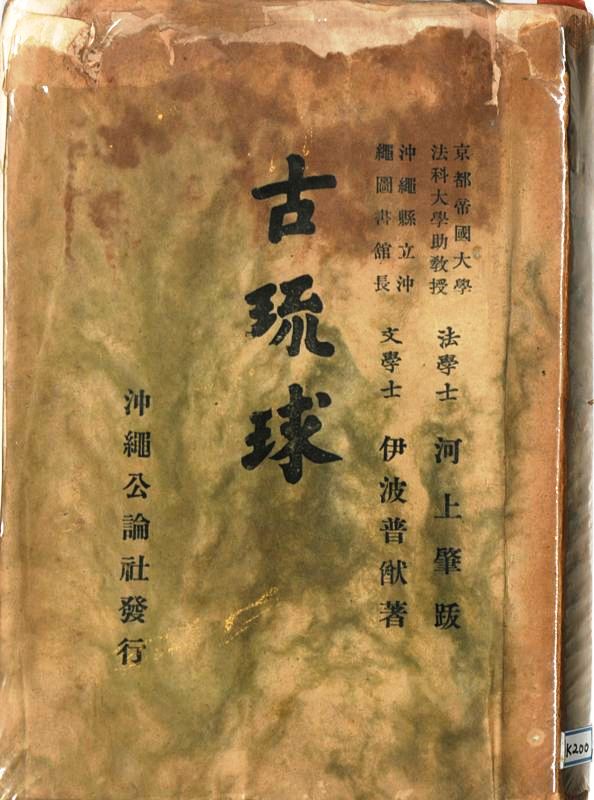 京都帝國大學
法科大學助教授
法學士 河上肇跋
沖繩縣立沖
繩圖書館長
文學士 伊波普猷著
古琉球
沖繩公論社發行
K200